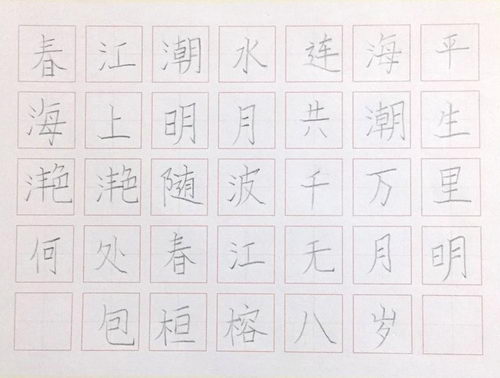 春江潮水连海平
海上明月共潮生
滟滟随波千万里
何处春江无月明
包桓榕八岁